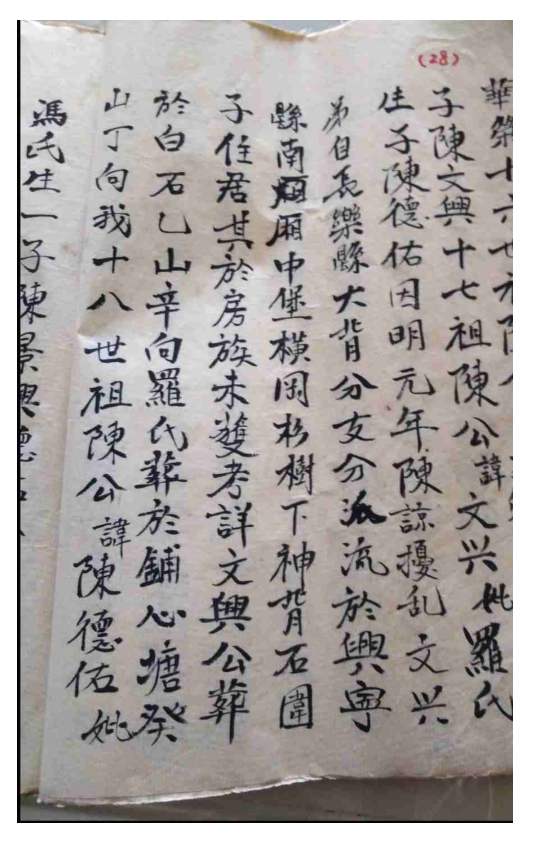 (28)
華 十六世祖陳
子陳文興十七祖陳公諱文兴妣羅氏
生子陳德佑因明元年陳諒擾乱文兴
弟自長樂縣大背分支分派流於興寧
縣南廂中堡橫岡杉樹下神背石圍
子住居其於房族未獲考詳文興公葬
於白石乙山辛向羅氏葬於鋪心塘癸
山丁向我十八世祖陳公諱陳德佑妣
馮氏生一子陳景興德